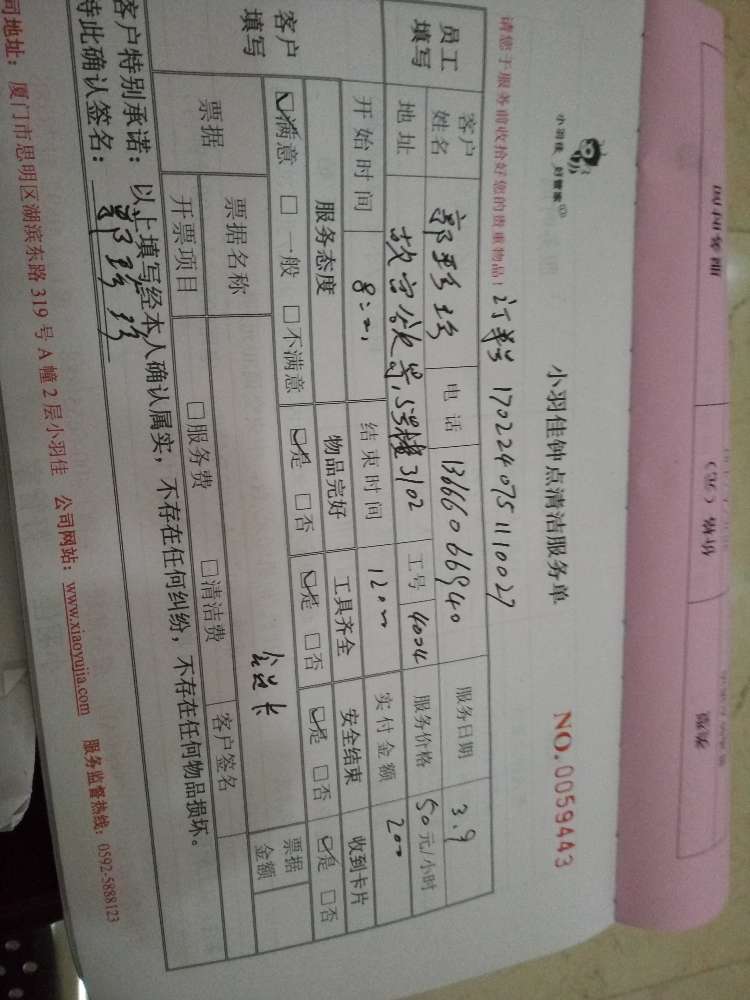 小羽佳 好管家
小羽佳钟点清洁服务单
NO.0059443
请您于服务前收拾好您的贵重物品!
订单号 1702240751110027
员工填写 客户姓名 郭珍珍 电话 13666066940 服务日期 3.9
地址 5号楼3102 工号 4004 服务价格 50元/小时
开始时间 8:00 结束时间 12:00 实付金额 200
客户填写 服务态度 物品完好 工具齐全 安全结束 收到卡片
☑满意 □一般 □不满意 ☑是 □否 ☑是 □否 ☑是 □否 ☑是 □否
票据 票据名称 会员卡 票据金额
开票项目 □服务费 □清洁费 客户签名
客户特别承诺:以上填写经本人确认属实,不存在任何纠纷,不存在任何物品损坏。
特此确认签名:郭珍珍
司地址:厦门市思明区湖滨东路319号A幢2层小羽佳 公司网站:www.xiaoyujia.com 服务监督热线:0592-5888123